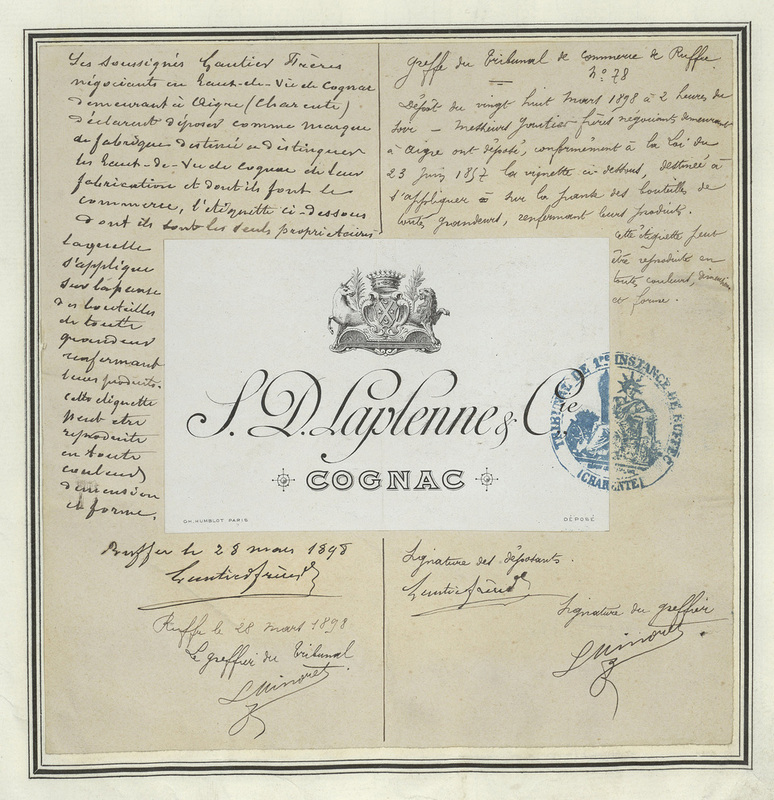 Les soussignés Gautier Frères
négociants en Eaux-de-Vie de Cognac
demeurant à Aigre (Charente)
déclarent déposer comme marque
de fabrique destinée à distinguer
les Eaux-de-Vie de Cognac de leur
fabrication et dont ils font le
commerce, l'étiquette ci-dessous
dont ils sont les seuls propriétaires
laquelle
s'applique
sur la panse
des bouteilles
de toute
grandeur
renfermant
leurs produits.
Cette étiquette
peut être
reproduite
en toute
couleur,
dimension
et forme.
Ruffec le 28 mars 1898
Gautier frères
Ruffec le 28 mars 1898
Le greffier du Tribunal
Greffe du Tribunal de Commerce de Ruffec
N° 78
Dépôt du vingt huit Mars 1898 à 2 heures du
soir - Messieurs Gautier frères négociants demeurant
à Aigre ont déposé, conformément à la Loi du
23 Juin 1857 la vignette ci-dessous, destinée à
s'appliquer sur la panse des bouteilles de
toutes grandeurs, renfermant leurs produits.
Cette étiquette peut
être reproduite en
toutes couleurs, dimension
et forme.
S. D. Laplenne & Cie
COGNAC
CH. HUMBLOT PARIS
DÉPOSÉ
TRIBUNAL DE 1re INSTANCE DE RUFFEC
(CHARENTE)
Signature des déposants.
Gautier frères
Signature du greffier